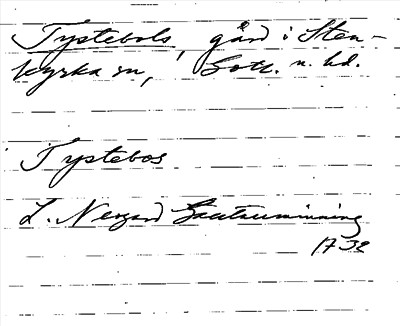 Tystebols, gård i Sten-
kyrka sn, Gotl. n. hd.
Tystebos
L. Nergård Gautauminning
1732